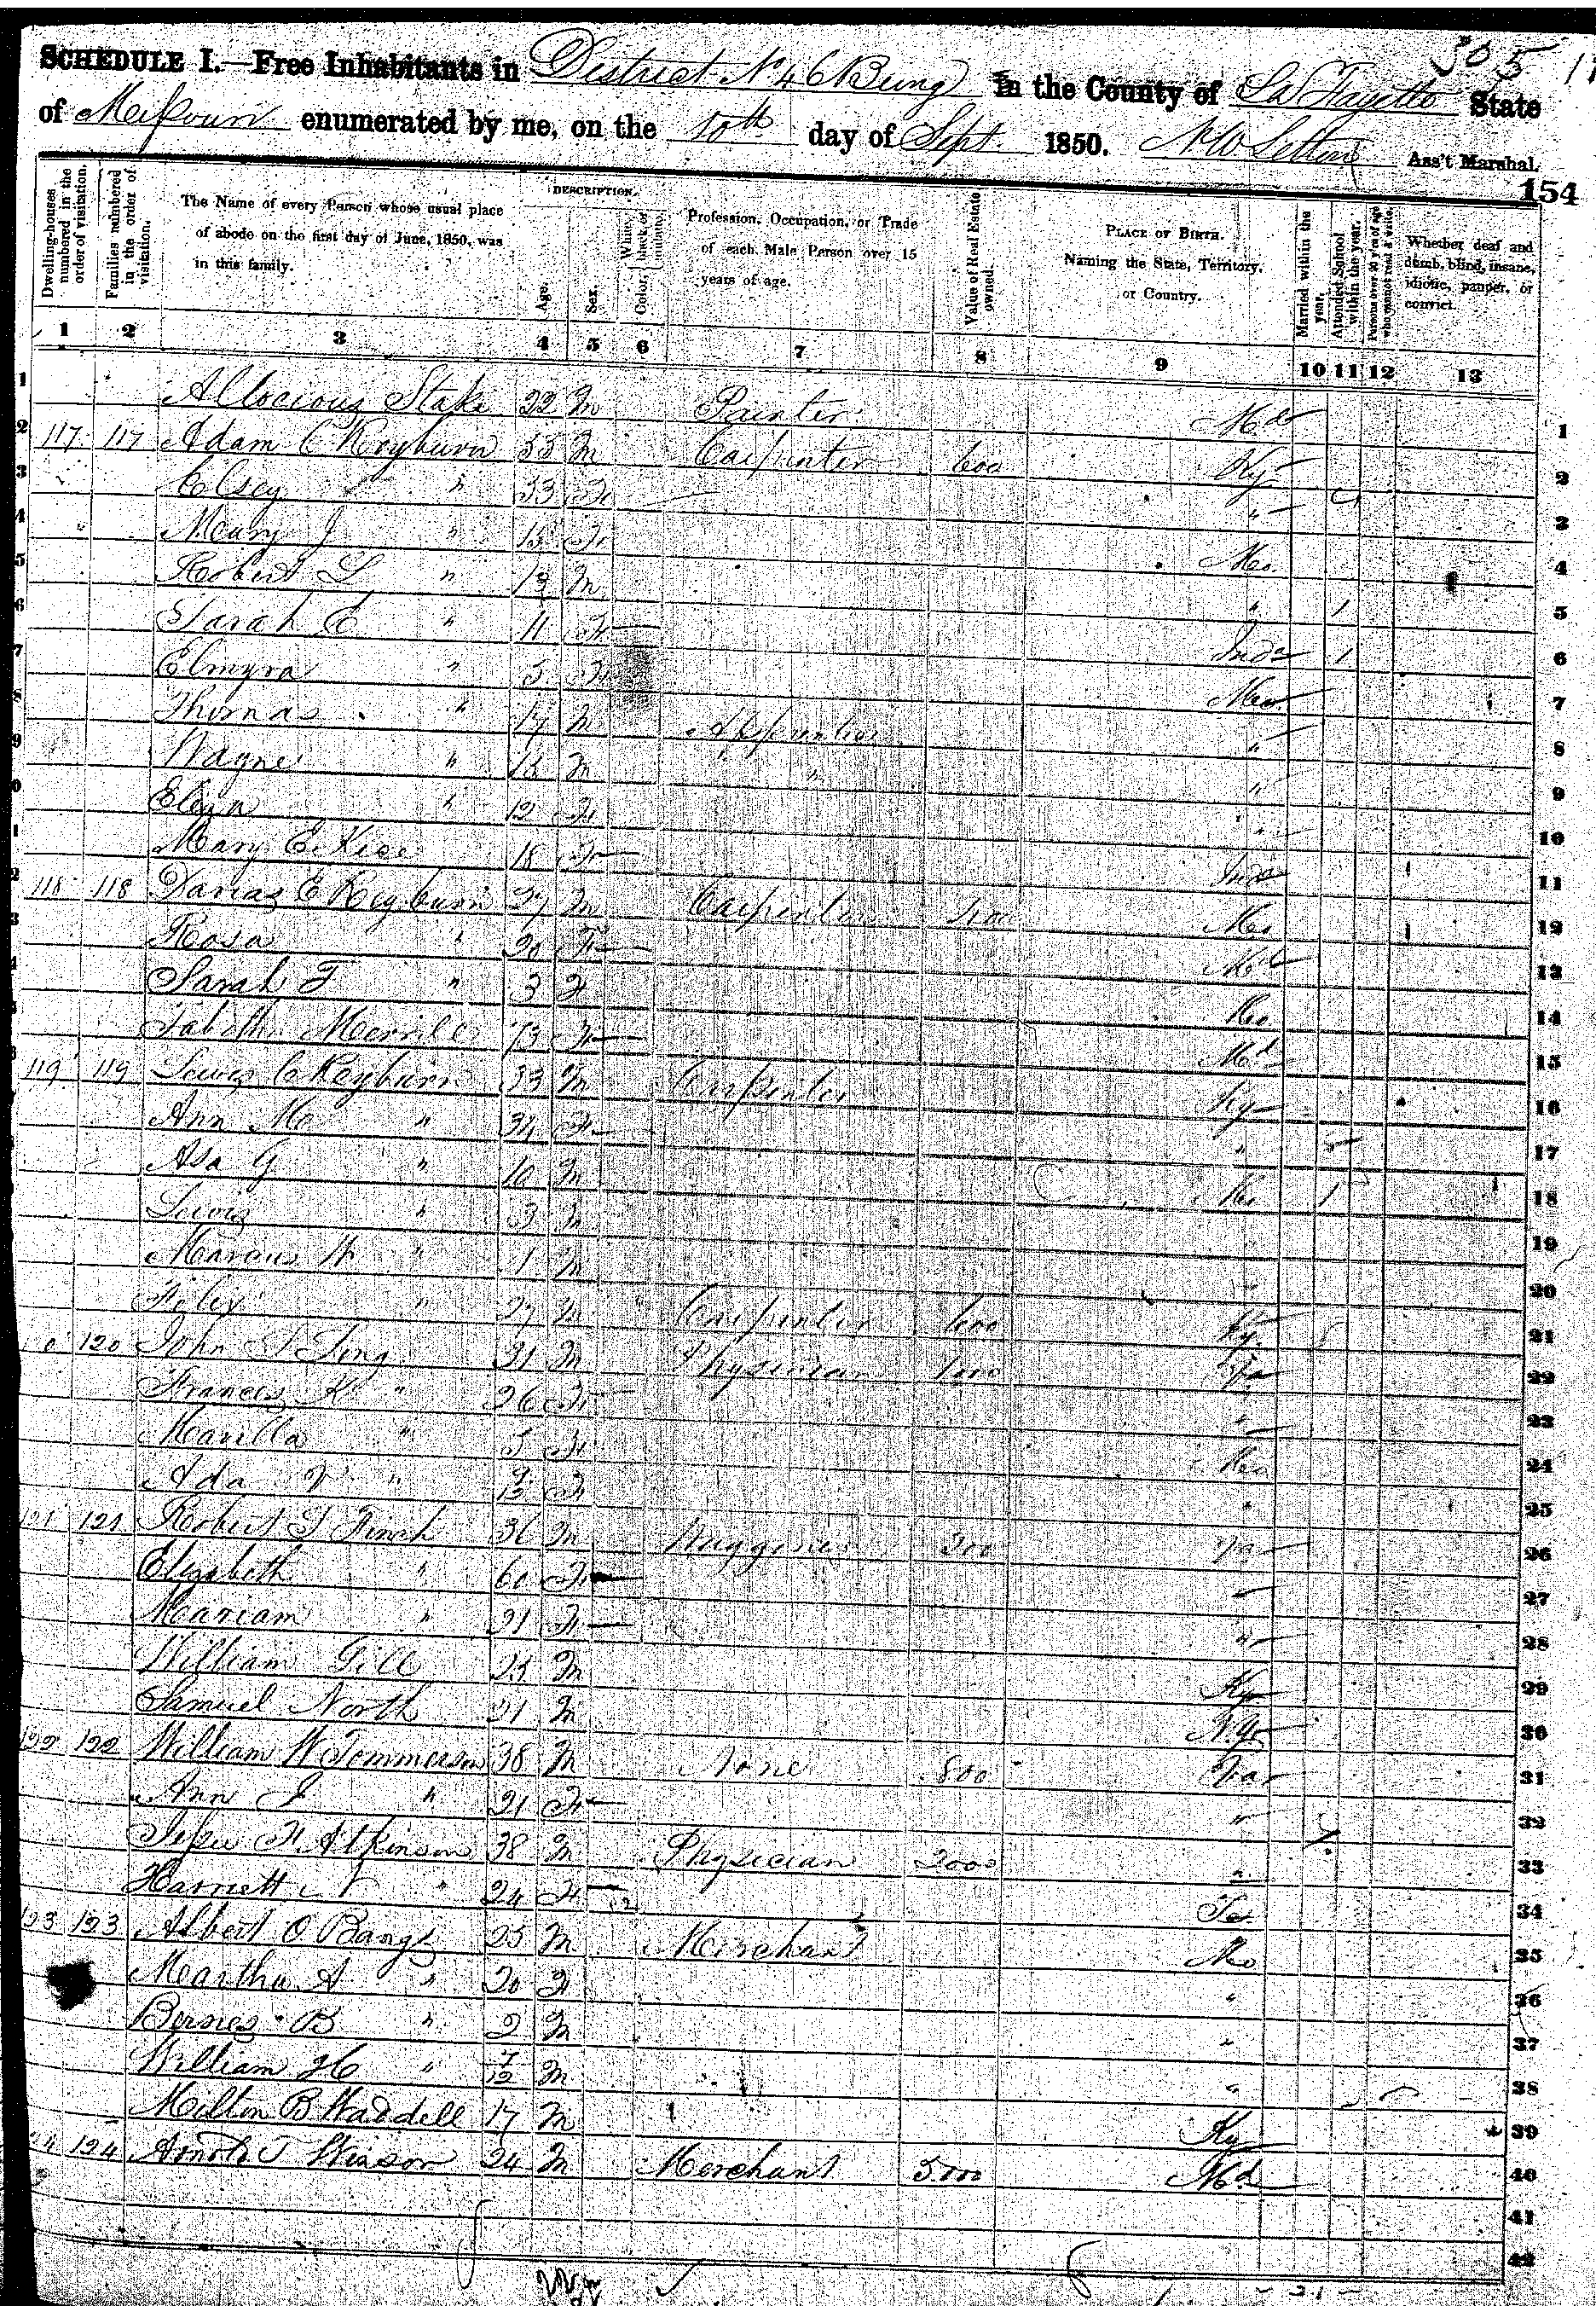 305
SCHEDULE I.—Free Inhabitants in District No 46 Being in the County of La Fayette State
of Missouri enumerated by me, on the 10th day of Sept. 1850. Ass't Marshal.
154
Dwelling-houses numbered in the order of visitation.
Families numbered in the order of visitation.
The Name of every Person whose usual place of abode on the first day of June, 1850, was in this family.
DESCRIPTION.
Age.
Sex.
Color, White, black, or mulatto.
Profession, Occupation, or Trade of each Male Person over 15 years of age.
Value of Real Estate owned.
PLACE OF BIRTH. Naming the State, Territory, or Country.
Married within the year.
Attended School within the year.
Persons over 20 y'rs of age who cannot read & write.
Whether deaf and dumb, blind, insane, idiotic, pauper, or convict.
1 2 3 4 5 6 7 8 9 10 11 12 13
1 Allocious Stake 22 M Painter Md 1
2 117 117 Adam C Reyburn 33 M Carpenter 600 Ky 2
3 Elsey " 33 F " 3
4 Mary J " 15 F Mo. 4
5 Robert L " 13 M " 1 5
6 Sarah E " 11 F Inda 1 6
7 Elmyra " 5 F Mo 7
8 Thomas " 17 M " 8
9 Wayne " 15 M " " 9
Eliza " 12 F " 10
Mary E. Kice 18 F Inda 11
118 118 Darias E Reyburn 27 M Carpenter Mo 12
Rosa " 20 F Md 13
Sarah F " 3 F Mo 14
Tabitha Merrile 73 F Md 15
119 119 Lewis C Reyburn 33 M Carpenter Ky 16
Ann M " 34 F " 17
Asa G " 10 M Mo 1 18
Lewis " 3 M 19
Marcus " 1 M 20
Felix " 27 M Carpenter 600 Ky. 21
120 John S Ling 31 M Physician 1000 Va 22
Frances K " 26 F " 23
Marilla " 5 F Mo 24
Ada V " 9/12 F " 25
121 121 Robert S Finch 36 M 300 Va 26
Elizabeth " 60 F 27
Mariam " 21 F " 28
William Gill 25 M Ky 29
Samuel North 21 M N.Yo 30
122 122 William W Tommerson 38 M None 800 Va 31
Ann J " 21 F " 32
Jesse F Atkinson 38 M Physician 2000 " 33
Harriett N " 24 F Te. 34
123 123 Albert O Bangs 25 M Merchant Mo 35
Martha A " 20 F " 36
Bernes B " 2 M " 37
William H " 7/12 M " 38
Milton B Waddell 17 M Ky 39
124 Arnold T Winsor 24 M Merchant 5000 Md 40
41
42